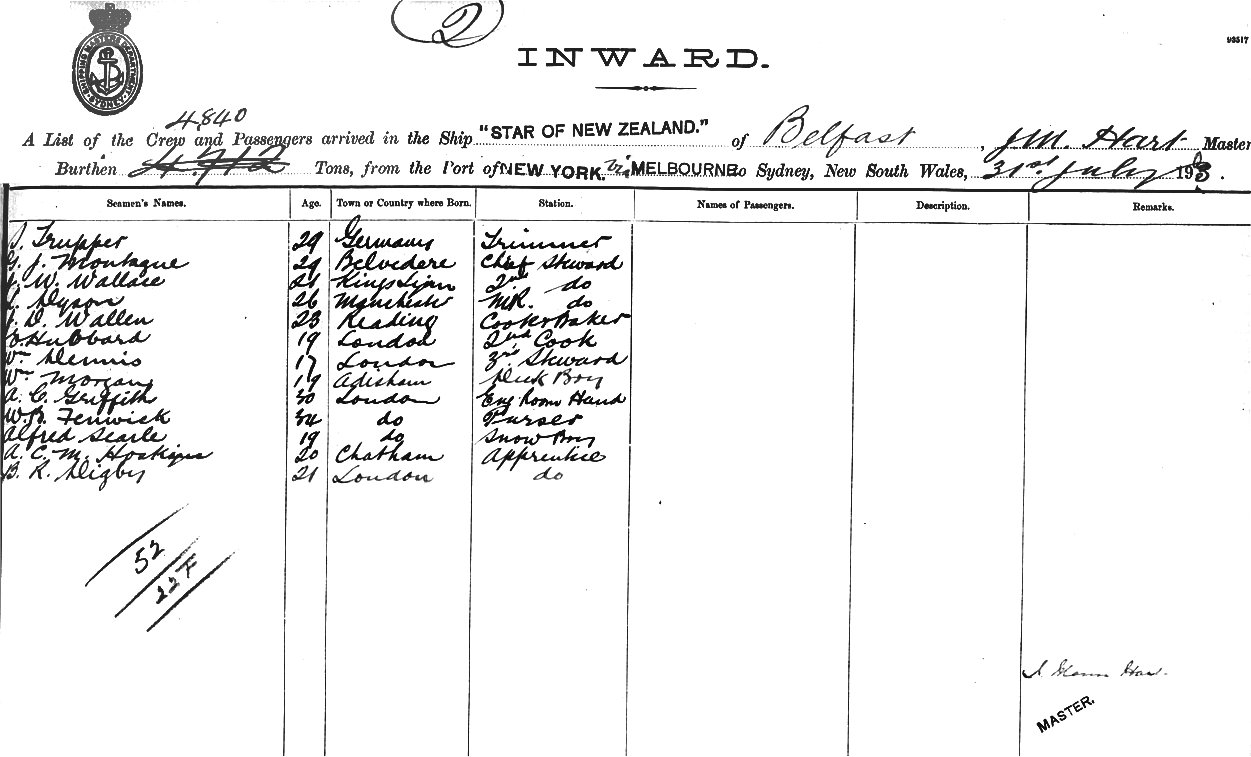 2
INWARD.
93517
SHIPPING MASTERS DEPARTMENT SYDNEY
4840
A List of the Crew and Passengers arrived in the Ship "STAR OF NEW ZEALAND." of Belfast, J.M. Hart Master
Burthen Tons, from the Port of NEW YORK. via MELBOURNE to Sydney, New South Wales, 31st July 19
Seamen's Names. Age. Town or Country where Born. Station. Names of Passengers. Description. Remarks.
Trupper 29 Germany Trimmer
G. J. Montague 29 Belvedere Chief Steward
W. Wallace 21 Kings Lynn 2nd do
Dyson 26 Manchester M.R. do
D. Wallen 23 Reading Cook & Baker
Hubbard 19 London 2nd Cook
Wm Dennis 17 London 3rd Steward
Wm Morgan 19 Adisham Deck Boy
A. C. Griffith 30 London Eng Room Hand
W. B. Fenwick 34 do Purser
Alfred Searle 19 do Snow Boy
A. C. M. Hoskins 20 Chatham Apprentice
B. R. Digby 21 London do
52
22 F
Hart
MASTER.